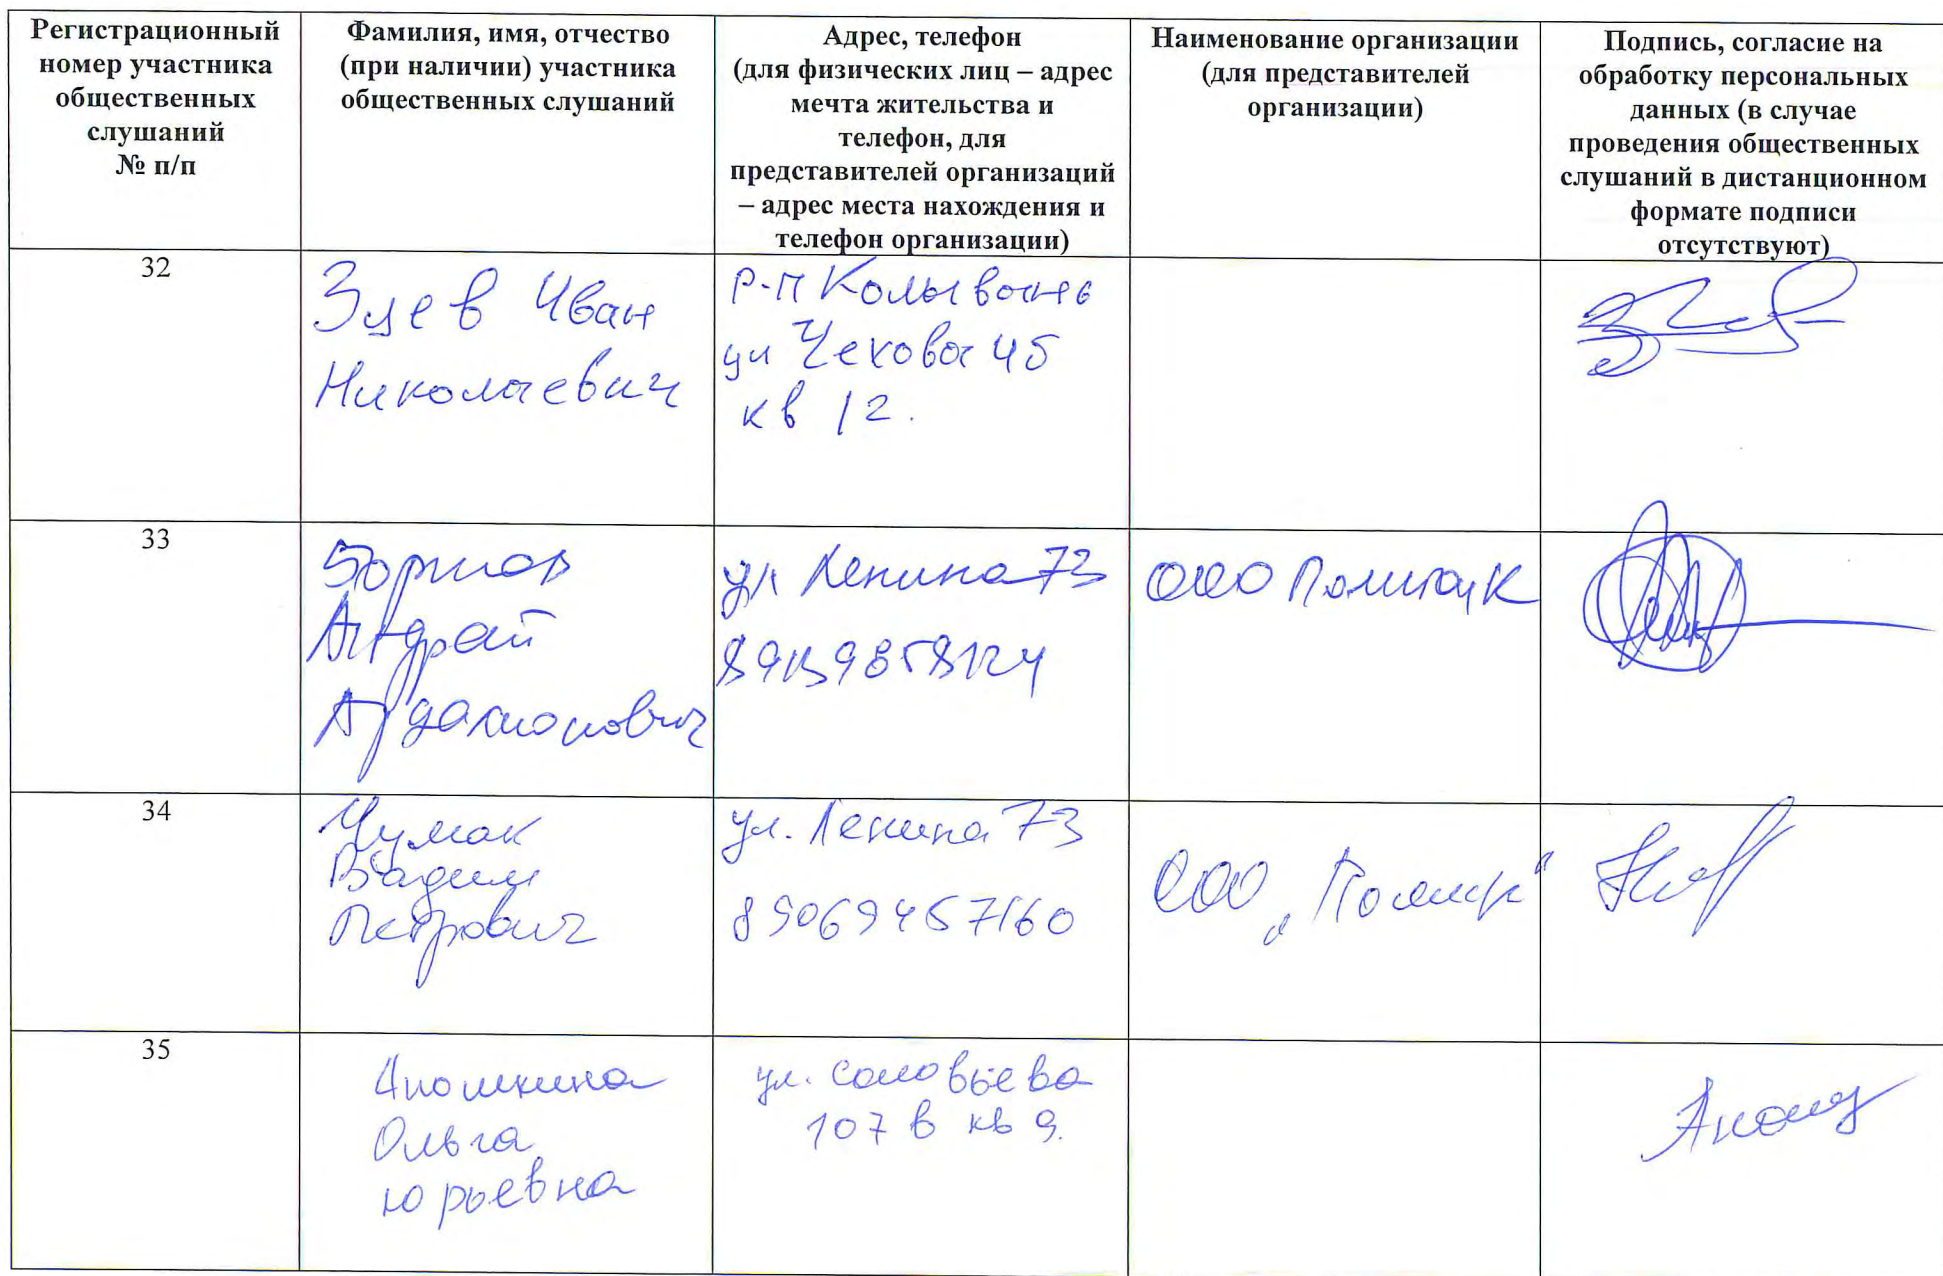 Регистрационный
номер участника
общественных
слушаний
№ п/п
Фамилия, имя, отчество
(при наличии) участника
общественных слушаний
Адрес, телефон
(для физических лиц – адрес
мечта жительства и
телефон, для
представителей организаций
– адрес места нахождения и
телефон организации)
Наименование организации
(для представителей
организации)
Подпись, согласие на
обработку персональных
данных (в случае
проведения общественных
слушаний в дистанционном
формате подписи
отсутствуют)
32
Иван
Николаевич
р-п Колывань
ул Чехова 45
кв 12.
33
Андрей
ул Ленина 73
ООО
34
Чумак
Вадим
Петрович
ул. Ленина 73
89069457160
ООО
35
Ольга
юрьевна
ул. соловьева
107 в кв 9.